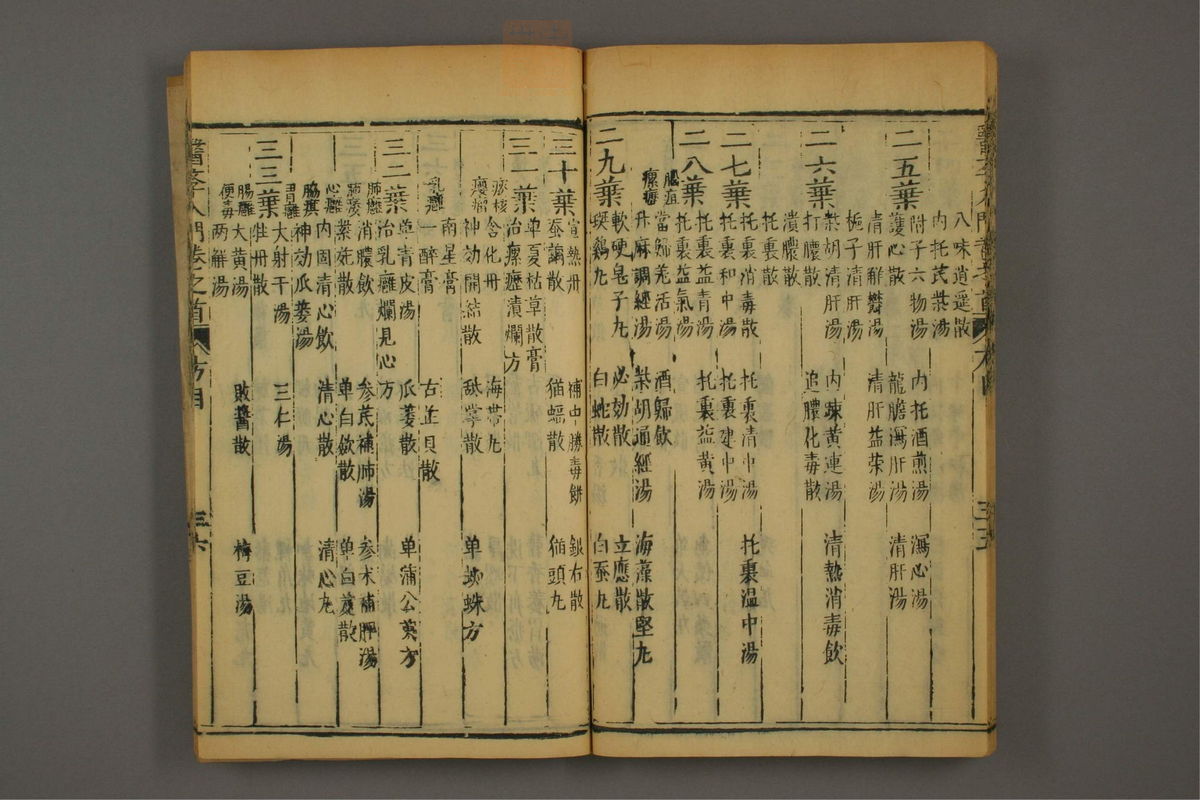 八味逍遥散
内托芪柴湯
二五葉 附子六物湯 内托酒煎湯 瀉心湯
護心散 龍膽瀉肝湯 清肝湯
清肝解鬱湯 清肝益荣湯
梔子清肝湯
二六葉 柴胡清肝湯 内疎黄連湯 清熱消毒飲
打膿散 追膿化毒散
潰膿散
托裏散
二七葉 托裏消毒散 托裏清中湯 托裏温中湯
托裏和中湯 托裏建中湯
托裏益青湯 托裏益黄湯
二八葉 托裏益氣湯
當歸羌活湯 酒歸飲
瘰癧 升麻調經湯 柴胡通經湯 海藻散堅丸
軟硬皂子丸 必効散 立應散
二九葉 瑛鷄丸 白蛇散 白蚕丸
宣熱丹 補中勝毒餅 銀右散
三十葉 蚕繭散 猫蝠散 猫頭丸
单夏枯草散膏
三一葉 治瘰癧潰爛方
痰核 含化丹 海帶丸
癭瘤 神効開結散 舐掌散 单蜘蛛方
南星膏
乳癰 一醉膏 古芷貝散
单青皮湯 瓜蔞散 单蒲公英方
三二葉 治乳癰爛見心方
肺癰 消膿飲 参芪補肺湯 参术補脾湯
肺痿 紫菀散 单白歛散 单白芨散
心癰 内固清心飲 清心散 清心丸
脇癰 神効瓜蔞湯
胃癰 大射干湯 三仁湯
三三葉 牡丹散
腸癰 大黄湯 敗醬散 梅豆湯
便毒 两解湯
醫學入門卷之首 方目 三六